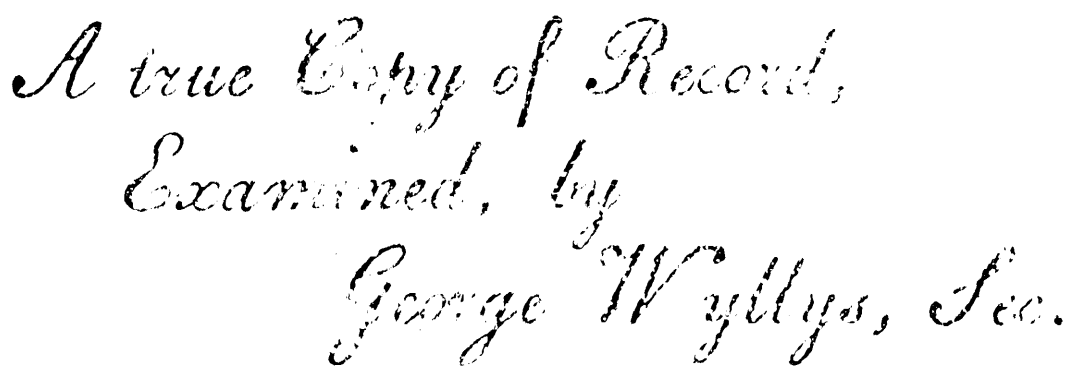 A true Copy of Record,
Examined, by
George Wyllys, Sec.